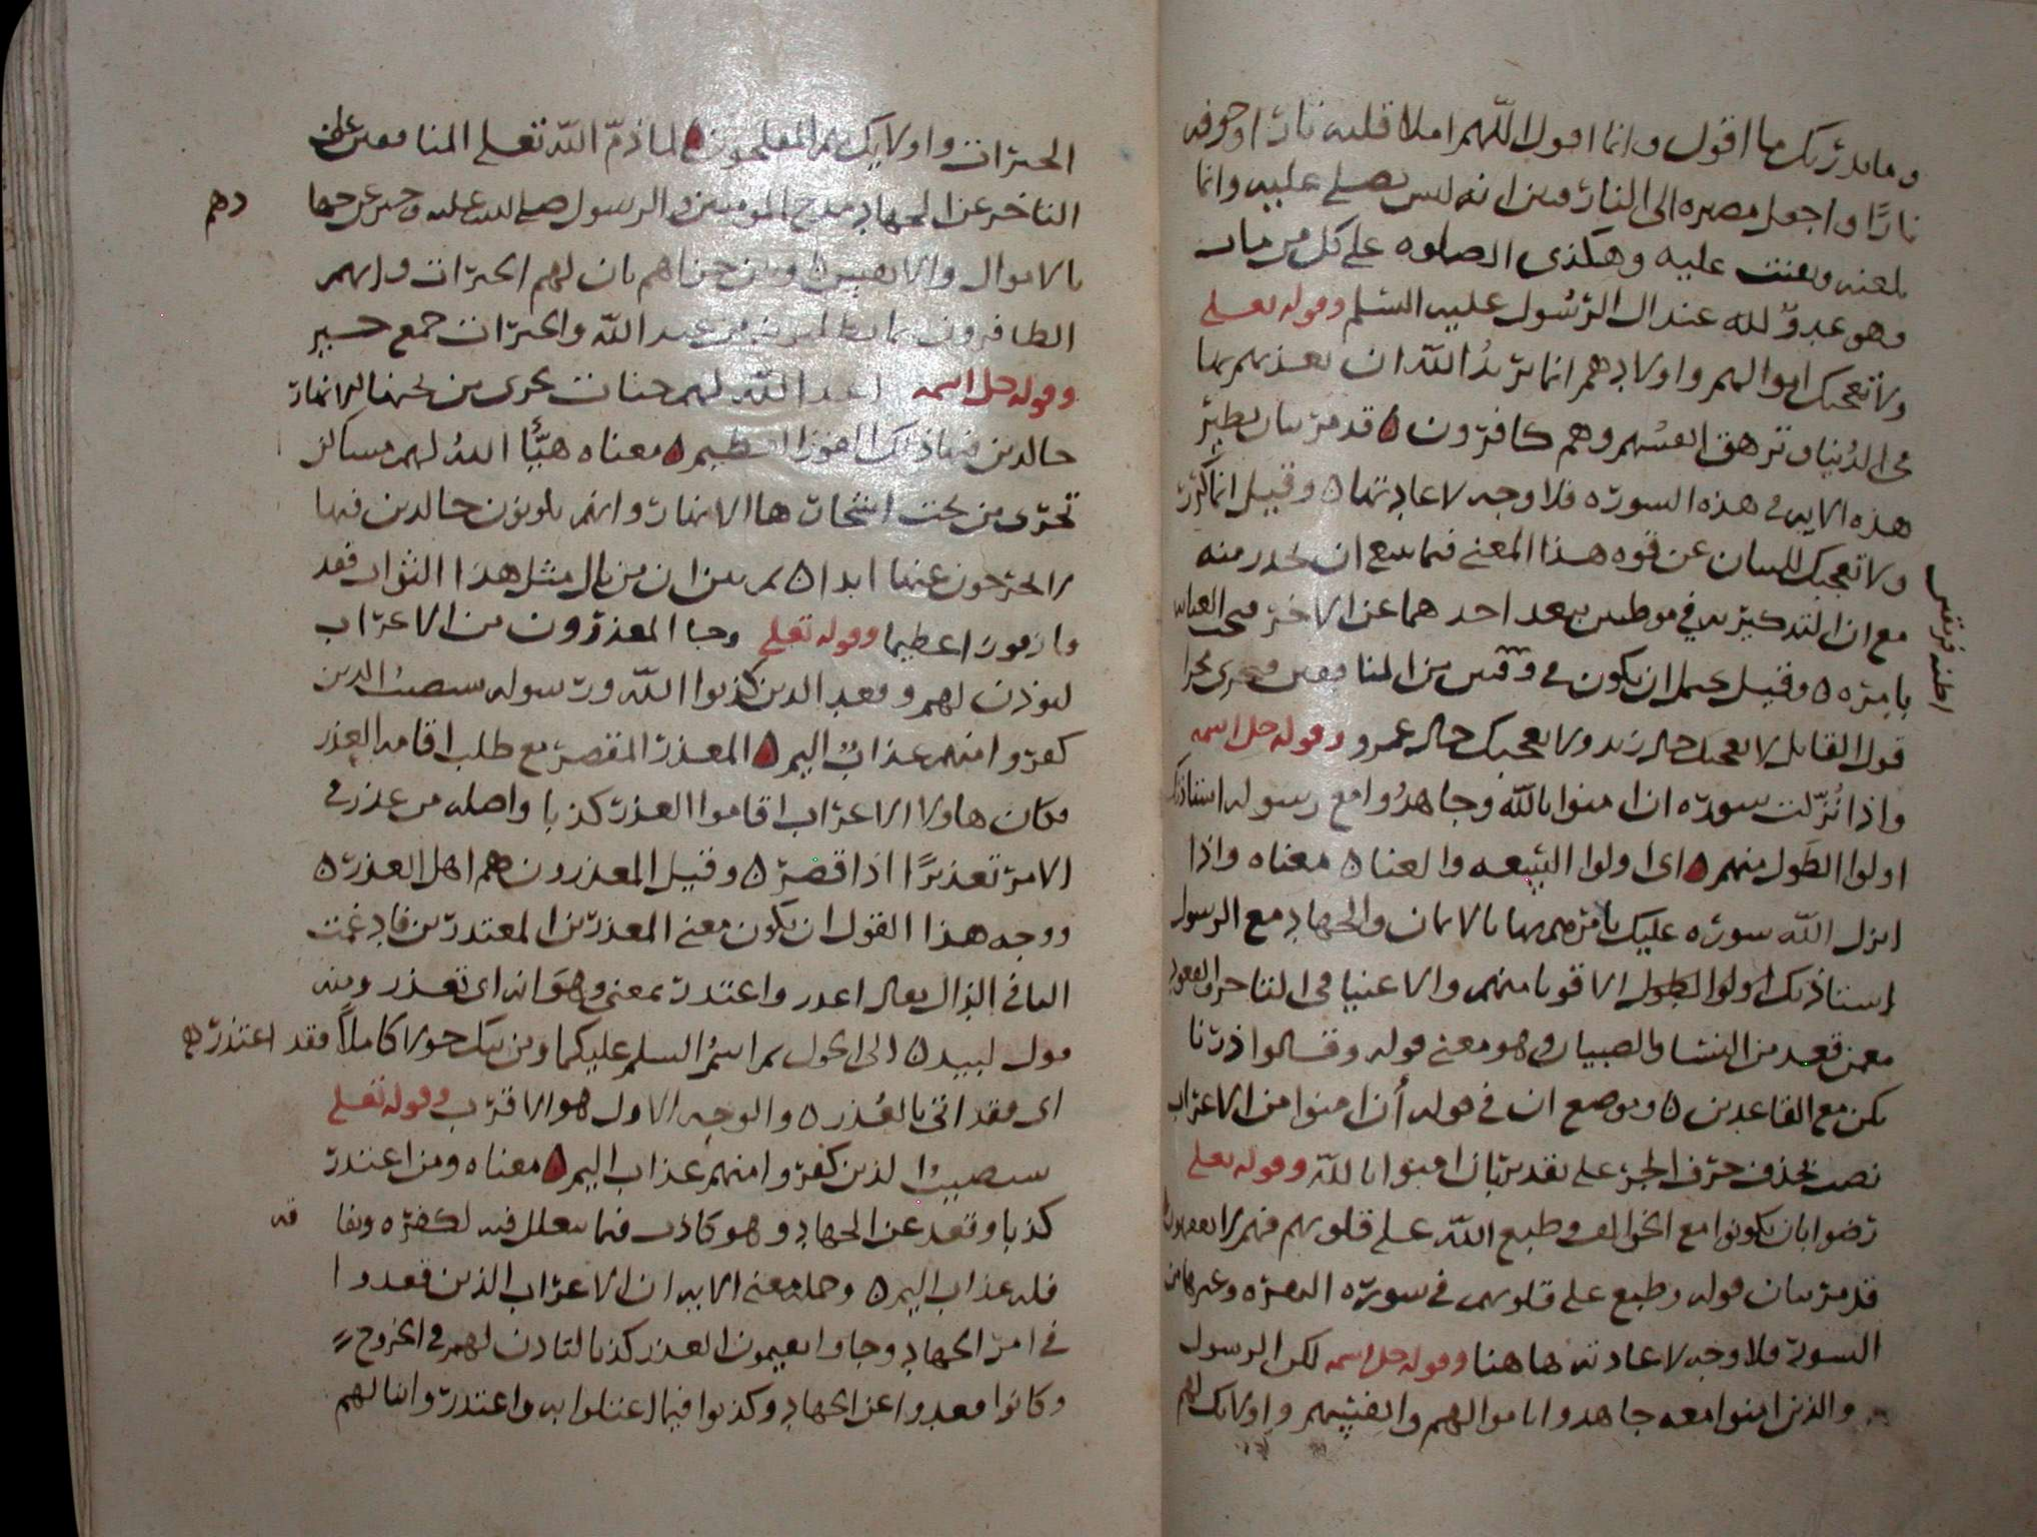 وما يدريك ما اقول وانما اقول اللهم املا قلبه نارا وجوفه
نارًا واجعل مصيره الى النار فبين انه ليس يصلي عليه وانما
يلعنه ويقنت عليه وهكذى الصلوه على كل من مات
وهو عدوّ لله عند ال الرسُول عليه السّلم وقوله تعلى
ولا تعجبك اموالهم واولادهم انما يريدُ الله ان يعذبهم بها
في الدُنيا وتزهق انفسُهم وهم كافرون ۵ قد مرّ بيان نظير
هذه الايه في هذه السوره فلا وجه لاعادتها ۵ وقيل انما كرّر
ولا تعجبك للبيان عن قوه هذا المعنى فيما ينبغي ان يحذر منه
مع ان التذكير به في موطنين بعد احدهما عن الاخر
بامره ۵ وقيل يحتمل ان يكون في فريقين من المنافقين فجرى مجرا
اظنه فريقين
قول القايل لا يعجبك حال زيد ولا يعجبك حال عمرو وقوله جل اسمه
واذا نُزّلت سوره ان امنوا بالله وجاهدُوا مع رسوله استاذنك
اولوا الطَول منهم ۵ اى اولوا السعه والغنا ۵ معناه واذا
انزل الله سوره عليك يامرهم بها بالايمان والجهاد مع الرسول
استاذنك اولوا الطول الاقويا منهم والاغنيا في التاخر القعود
معمن قعد من النسا والصبيان وهو معنى قوله وقالوا ذرنا
نكن مع القاعدين ۵ وموضع ان في قوله أن امنوا من الاعراب
نصب بحذف حرف الجر على تقدير بان امنوا بالله وقوله تعلى
رضوا بان يكونوا مع الخوالف وطبع الله على قلوبهم فهم لا يفقهون
قد مرّ بيان قوله وطبع على قلوبهم في سوره البقره وغيرها من
السور فلا وجه لاعادته هاهنا وقوله جل اسمه لكن الرسول
والذين امنوا معه جاهدوا باموالهم وانفسهم واولايك لهم
الخيرات واولايك هم المفلحون ۵ لما ذمّ الله تعلى المنافقين على
التاخر عن الجهاد مدح المومنين والرسول صلى الله عليه وخبر عن جها
دهم
بالاموال والانفس ۵ وبين جزاهم بان لهم الخيرات وانهم
الظافرون بما يطلبونه من عند الله والخيرات جمع خير
وقوله جل اسمه اعد الله لهم جنات تجرى من تحتها الانهار
خالدين فيها ذلك الفوز العظيم ۵ معناه هيَّأ اللهُ لهم مساكن
تجرى من تحت اشجارها الانهار وانهم يكونون خالدين فيها
لا يخرجون عنها ابدا ۵ ثم بين ان من نال مثل هذا الثواب فقد
فاز فوزا عظيما وقوله تعلى وجا المعذرون من الاعراب
ليوذن لهم وقعد الذين كذبوا الله ورسوله سيصيبُ الذين
كفروا منهم عذابٌ اليم ۵ المعذر المقصر مع طلب اقامه العذر
فكان هاولا الاعراب اقاموا العذر كذبا واصله من عذر في
الامر تعذيرًا اذا قصّر ۵ وقيل المعذرون هم اهل العذر ۵
ووجه هذا القول ان يكون معنى المعذرين المعتذرين فادغمت
التا في الذال يقال اعذر واعتذر بمعنى وهو انه اى تعذر ومنه
قول لبيد ۵ الى الحول ثم اسمُ السلم عليكما ومن يبك حولا كاملًا فقد اعتذر ۵
اى فقد اتى بالعُذر ۵ والوجه الاول هو الاقرب وقوله تعلى
سيصيبُ الذين كفروا منهم عذاب اليم ۵ معناه ومن اعتذر
كذبا وقعد عن الجهاد وهو كاذب فيما يتعلل فيه لكفره ونفا
قه
فله عذاب اليم ۵ وجمله معنى الايه ان الاعراب الذين قعدوا
في امر الجهاد وجاوا يقيمون العذر كذبا لتاذن لهم في الخروج
وكانوا قعدوا عن الجهاد وكذبوا فيما اعتلوا به واعتذروا انا لهم